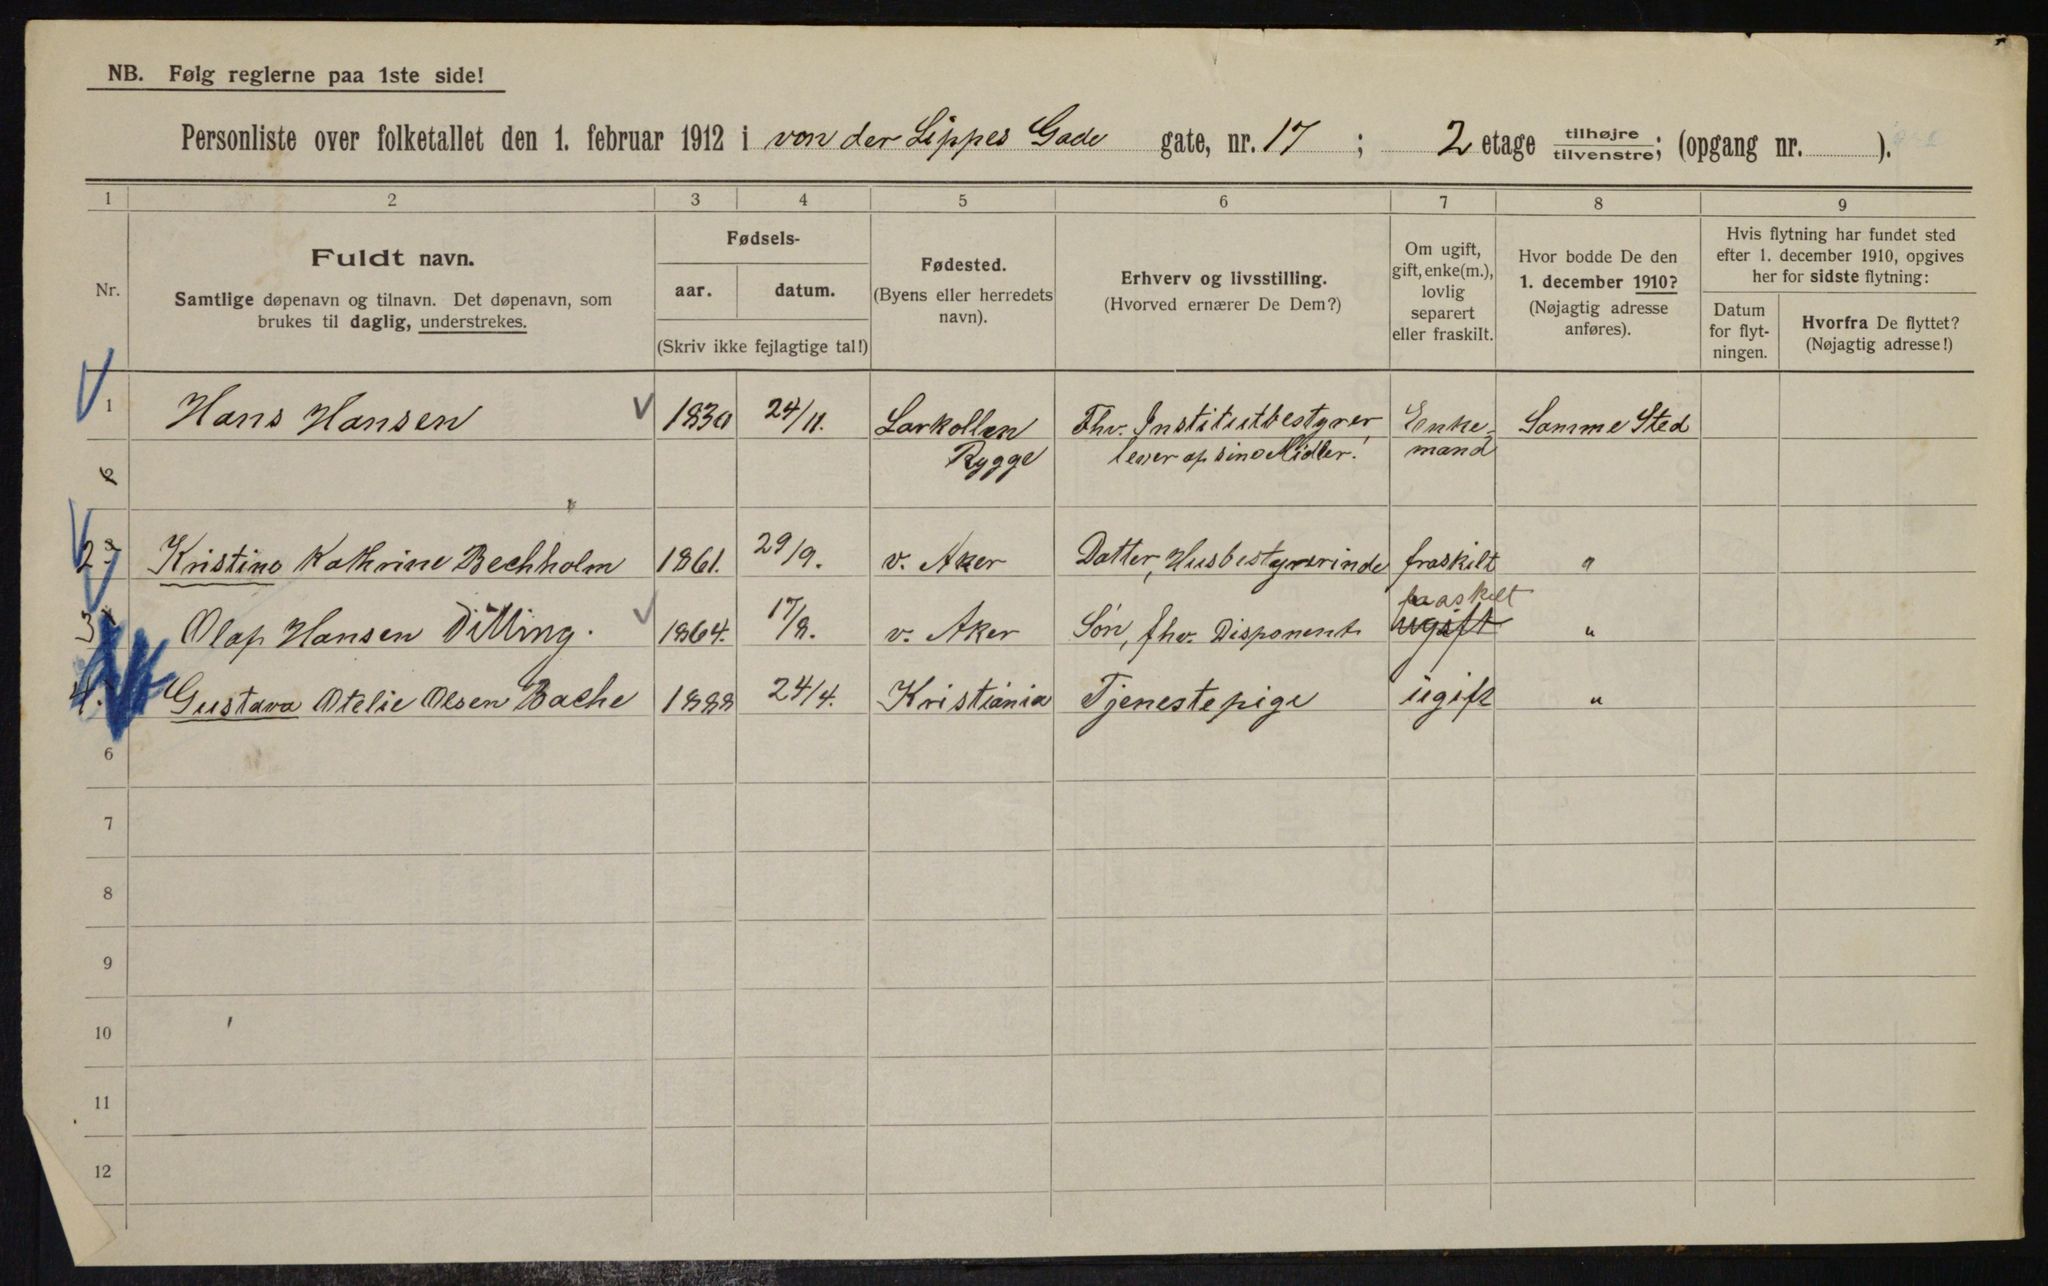 NB. Følg reglerne paa 1ste side!
Personliste over folketallet den 1. februar 1912 i von der Lippes Gade gate, nr. 17 ; 2 etage tilhøjre/tilvenstre; (opgang nr. ).
1 2 3 4 5 6 7 8 9
Nr.
Fuldt navn.
Samtlige døpenavn og tilnavn. Det døpenavn, som
brukes til daglig, understrekes.
Fødsels-
aar. datum.
(Skriv ikke fejlagtige tal!)
Fødested.
(Byens eller herredets
navn).
Erhverv og livsstilling.
(Hvorved ernærer De Dem?)
Om ugift,
gift, enke(m.),
lovlig
separert
eller fraskilt.
Hvor bodde De den
1. december 1910?
(Nøjagtig adresse
anføres).
Hvis flytning har fundet sted
efter 1. december 1910, opgives
her for sidste flytning:
Datum
for flyt-
ningen.
Hvorfra De flyttet?
(Nøjagtig adresse!)
1 Hans Hansen 1830 24/11. Larkollen Fhv. Institutbestyrer, Enke- Samme Sted
Rygge lever af sine Midler. mand
2 Kristine Kathrine Bechholm 1861. 29/9. v. Aker Datter, Husbestyrerinde fraskilt "
fraskilt
3 Olaf Hansen Dilling. 1864. 17/8. v. Aker Søn, fhv. Disponent ugift "
4. Gustava Otelie Olsen Bache 1888 24/4. Kristiania Tjenestepige ugift "
6
7
8
9
10
11
12